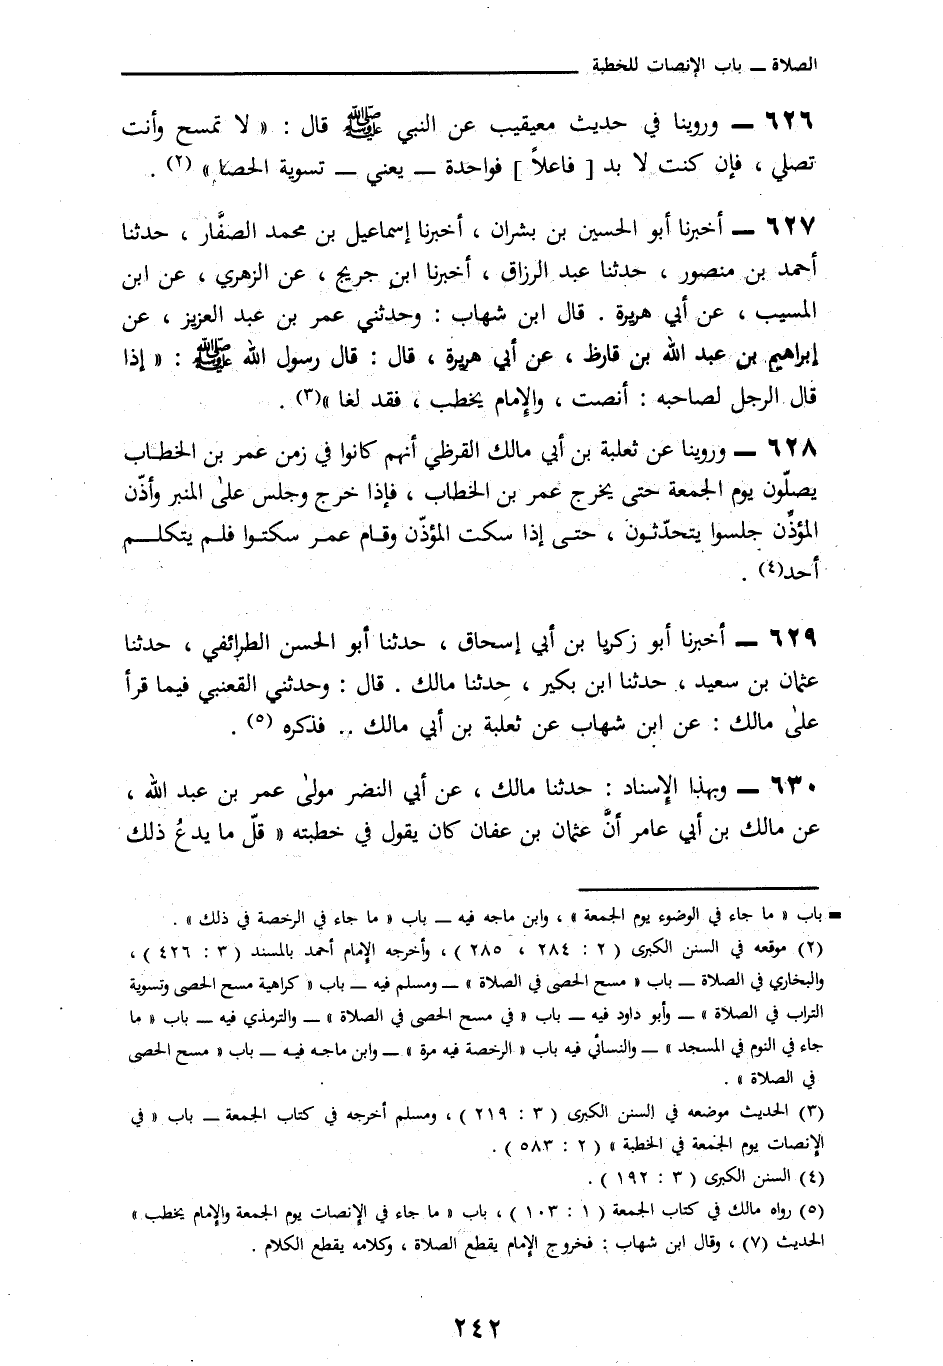 الصلاة ــ باب الإنصات للخطبة
٦٢٦ ــ وروينا في حديث معيقيب عن النبي ﷺ قال : « لا تمسح وأنت
تصلي ، فإن كنت لا بد [ فاعلاً ] فواحدة ــ يعني ــ تسوية الحصا » (٢) .
٦٢٧ ــ أخبرنا أبو الحسين بن بشران ، أخبرنا إسماعيل بن محمد الصفَّار ، حدثنا
أحمد بن منصور ، حدثنا عبد الرزاق ، أخبرنا ابن جريج ، عن الزهري ، عن ابن
المسيب ، عن أبي هريرة . قال ابن شهاب : وحدثني عمر بن عبد العزيز ، عن
إبراهيم بن عبد الله بن قارظ ، عن أبي هريرة ، قال : قال رسول الله ﷺ : « إذا
قال الرجل لصاحبه : أنصت ، والإمام يخطب ، فقد لغا »(٣) .
٦٢٨ ــ وروينا عن ثعلبة بن أبي مالك القرظي أنهم كانوا في زمن عمر بن الخطاب
يصلّون يوم الجمعة حتى يخرج عمر بن الخطاب ، فإذا خرج وجلس علىٰ المنبر وأذّن
المؤذِّن جلسوا يتحدّثون ، حتى إذا سكت المؤذّن وقام عمر سكتوا فلم يتكلم
أحد(٤) .
٦٢٩ ــ أخبرنا أبو زكريا بن أبي إسحاق ، حدثنا أبو الحسن الطرائفي ، حدثنا
عثمان بن سعيد ، حدثنا ابن بكير ، حدثنا مالك . قال : وحدثني القعنبي فيما قرأ
علىٰ مالك : عن ابن شهاب عن ثعلبة بن أبي مالك .. فذكره (٥) .
٦٣٠ ــ وبهذا الإسناد : حدثنا مالك ، عن أبي النضر مولىٰ عمر بن عبد الله ،
عن مالك بن أبي عامر أنَّ عثمان بن عفان كان يقول في خطبته « قلّ ما يدعُ ذلك
= باب « ما جاء في الوضوء يوم الجمعة » ، وابن ماجه فيه ــ باب « ما جاء في الرخصة في ذلك » .
(٢) موقعه في السنن الكبرى ( ٢ : ٢٨٤ ، ٢٨٥ ) ، وأخرجه الإمام أحمد بالمسند ( ٣ : ٤٢٦ ) ،
والبخاري في الصلاة ــ باب « مسح الحصى في الصلاة » ــ ومسلم فيه ــ باب « كراهية مسح الحصى وتسوية
التراب في الصلاة » ــ وأبو داود فيه ــ باب « في مسح الحصى في الصلاة » ــ والترمذي فيه ــ باب « ما
جاء في النوم في المسجد » ــ والنسائي فيه باب « الرخصة فيه مرة » ــ وابن ماجه فيه ــ باب « مسح الحصى
في الصلاة » .
(٣) الحديث موضعه في السنن الكبرى ( ٣ : ٢١٩ ) ، ومسلم أخرجه في كتاب الجمعة ــ باب « في
الإنصات يوم الجمعة في الخطبة » ( ٢ : ٥٨٣ ) .
(٤) السنن الكبرى ( ٣ : ١٩٢ ) .
(٥) رواه مالك في كتاب الجمعة ( ١ : ١٠٣ ) ، باب « ما جاء في الإنصات يوم الجمعة والإمام يخطب »
الحديث (٧) ، وقال ابن شهاب : فخروج الإمام يقطع الصلاة ، وكلامه يقطع الكلام .
٢٤٢